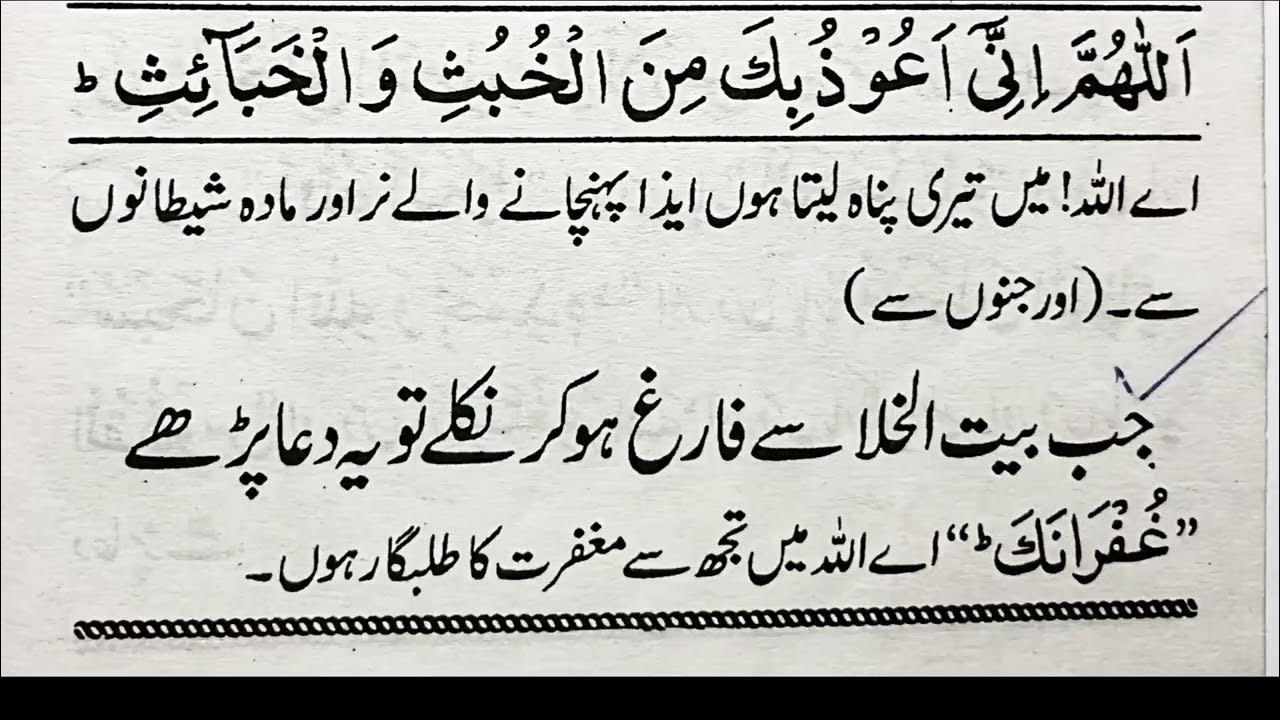 اَللّٰهُمَّ اِنِّیْٓ اَعُوْذُ بِكَ مِنَ الْخُبُثِ وَ الْخَبَآئِثِ ؕ
اے اللہ! میں تیری پناہ لیتا ہوں ایذا پہنچانے والے نر اور مادہ شیطانوں
سے۔ (اور جنوں سے)
جب بیت الخلا سے فارغ ہو کر نکلے تو یہ دعا پڑھے
”غُفْرَانَكَ ؕ“ اے اللہ میں تجھ سے مغفرت کا طلبگار ہوں۔